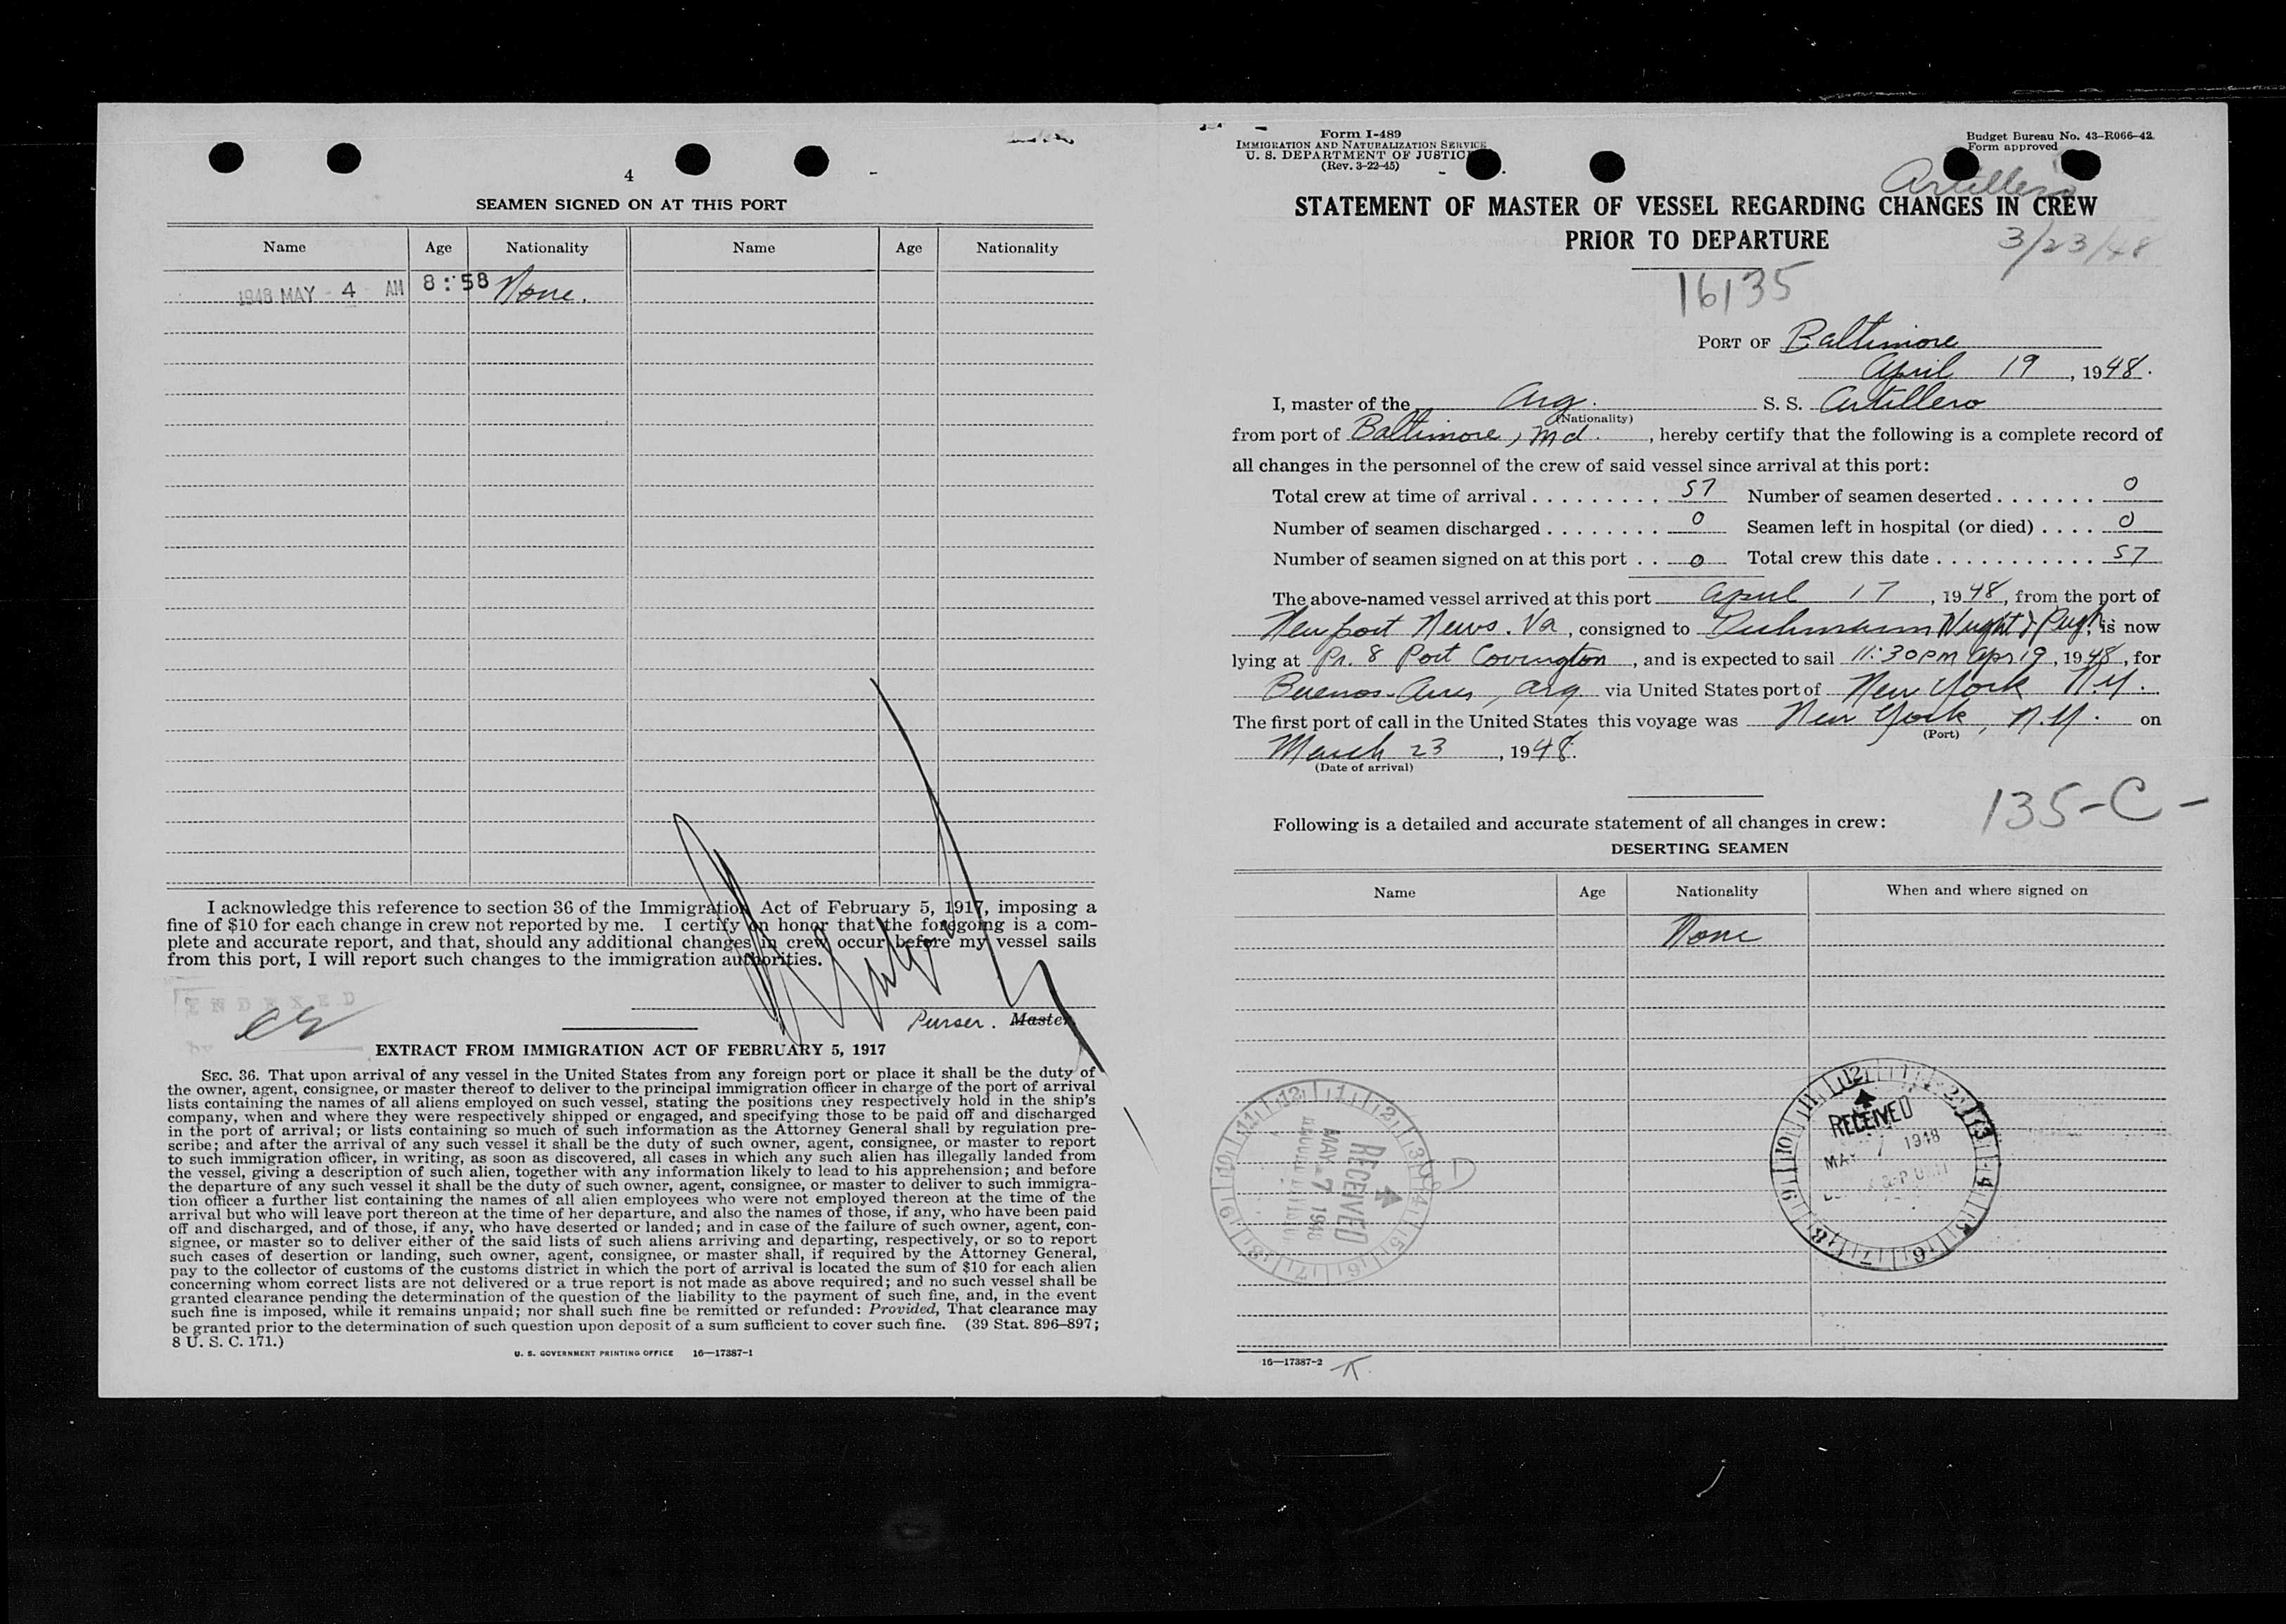 4
SEAMEN SIGNED ON AT THIS PORT
Name Age Nationality Name Age Nationality
1948 MAY 4 AM 8:58 None.
I acknowledge this reference to section 36 of the Immigration Act of February 5, 1917, imposing a
fine of $10 for each change in crew not reported by me. I certify on honor that the foregoing is a com-
plete and accurate report, and that, should any additional changes in crew occur before my vessel sails
from this port, I will report such changes to the immigration authorities.
INDEXED
Purser. Master.
EXTRACT FROM IMMIGRATION ACT OF FEBRUARY 5, 1917
SEC. 36. That upon arrival of any vessel in the United States from any foreign port or place it shall be the duty of
the owner, agent, consignee, or master thereof to deliver to the principal immigration officer in charge of the port of arrival
lists containing the names of all aliens employed on such vessel, stating the positions they respectively hold in the ship's
company, when and where they were respectively shipped or engaged, and specifying those to be paid off and discharged
in the port of arrival; or lists containing so much of such information as the Attorney General shall by regulation pre-
scribe; and after the arrival of any such vessel it shall be the duty of such owner, agent, consignee, or master to report
to such immigration officer, in writing, as soon as discovered, all cases in which any such alien has illegally landed from
the vessel, giving a description of such alien, together with any information likely to lead to his apprehension; and before
the departure of any such vessel it shall be the duty of such owner, agent, consignee, or master to deliver to such immigra-
tion officer a further list containing the names of all alien employees who were not employed thereon at the time of the
arrival but who will leave port thereon at the time of her departure, and also the names of those, if any, who have been paid
off and discharged, and of those, if any, who have deserted or landed; and in case of the failure of such owner, agent, con-
signee, or master so to deliver either of the said lists of such aliens arriving and departing, respectively, or so to report
such cases of desertion or landing, such owner, agent, consignee, or master shall, if required by the Attorney General,
pay to the collector of customs of the customs district in which the port of arrival is located the sum of $10 for each alien
concerning whom correct lists are not delivered or a true report is not made as above required; and no such vessel shall be
granted clearance pending the determination of the question of the liability to the payment of such fine, and, in the event
such fine is imposed, while it remains unpaid; nor shall such fine be remitted or refunded: Provided, That clearance may
be granted prior to the determination of such question upon deposit of a sum sufficient to cover such fine. (39 Stat. 896–897;
8 U. S. C. 171.)
U. S. GOVERNMENT PRINTING OFFICE 16—17387-1
Form I-489
IMMIGRATION AND NATURALIZATION SERVICE
U. S. DEPARTMENT OF JUSTICE
(Rev. 3-22-45)
Budget Bureau No. 43-R066-42
Form approved
Artillero
STATEMENT OF MASTER OF VESSEL REGARDING CHANGES IN CREW
PRIOR TO DEPARTURE
3/23/48
16135
PORT OF Baltimore
April 19, 1948.
I, master of the Arg. S. S. Artillero
(Nationality)
from port of Baltimore, Md., hereby certify that the following is a complete record of
all changes in the personnel of the crew of said vessel since arrival at this port:
Total crew at time of arrival . . . . . . . . . 57 Number of seamen deserted . . . . . . . 0
Number of seamen discharged . . . . . . . . 0 Seamen left in hospital (or died) . . . . 0
Number of seamen signed on at this port . . 0 Total crew this date . . . . . . . . . . . 57
The above-named vessel arrived at this port April 17, 1948, from the port of
Newport News. Va, consigned to & Pugh, is now
lying at Pr. 8 Port Covington, and is expected to sail 11:30 PM Apr 19, 1948, for
Buenos Aires, Arg via United States port of New York N.Y.
The first port of call in the United States this voyage was New York, N.Y. on
(Port)
March 23, 1948.
(Date of arrival)
135-C-
Following is a detailed and accurate statement of all changes in crew:
DESERTING SEAMEN
Name Age Nationality When and where signed on
None
RECEIVED
MAY 7 1948
RECEIVED
MAY 7 1948
16—17387-2